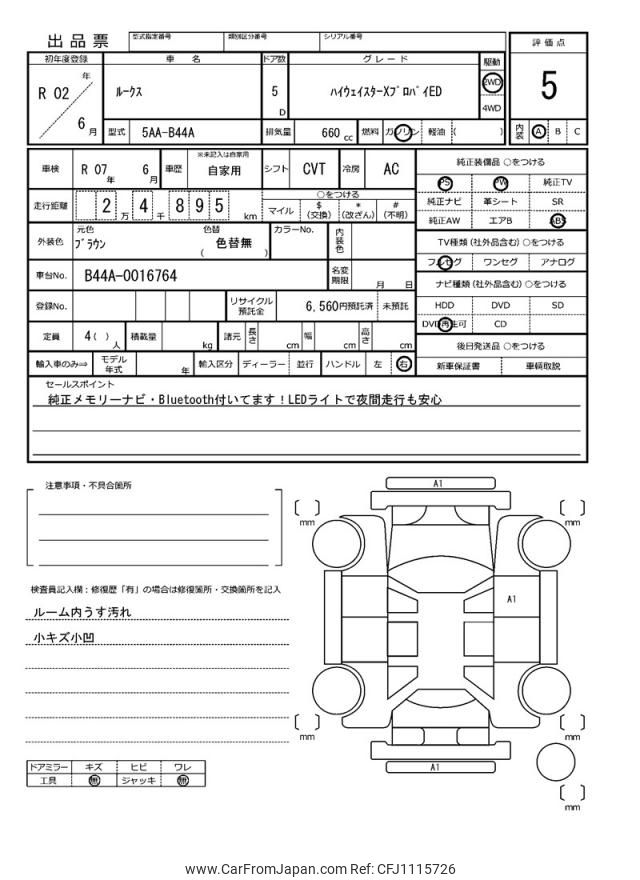 出品票 型式指定番号 類別区分番号 シリアル番号
初年度登録 車 名 ドア数 グレード 駆動 評価点
R 02 年 6 月 ルークス 5 D ハイウェイスターXプロパイED 2WD 4WD 5
型式 5AA-B44A 排気量 660 cc 燃料 ガソリン 軽油 ( ) 内装 A B C
車検 R 07 年 6 月 車歴 ※未記入は自家用 自家用 シフト CVT 冷房 AC 純正装備品 ○をつける
PS PW 純正TV
走行距離 2 万 4 千 8 9 5 km ○をつける 純正ナビ 革シート SR
マイル $ (交換) * (改ざん) # (不明) 純正AW エアB ABS
外装色 元色 ブラウン 色替 色替無 ( ) カラーNo. 内装色 TV種類 (社外品含む) ○をつける
フルセグ ワンセグ アナログ
車台No. B44A-0016764 名変期限 月 日 ナビ種類 (社外品含む) ○をつける
登録No. リサイクル預託金 6,560円預託済 未預託 HDD DVD SD
DVD再生可 CD
定員 4 ( ) 人 積載量 kg 諸元 長さ cm 幅 cm 高さ cm 後日発送品 ○をつける
輸入車のみ⇒ モデル年式 年 輸入区分 ディーラー 並行 ハンドル 左 右 新車保証書 車輌取説
セールスポイント
純正メモリーナビ・Bluetooth付いてます！LEDライトで夜間走行も安心
注意事項・不具合箇所
A1
[ ] mm [ ] mm
検査員記入欄：修復歴「有」の場合は修復箇所・交換箇所を記入
A1
ルーム内うす汚れ
小キズ小凹
[ ] mm [ ] mm
A1
ドアミラー キズ ヒビ ワレ
工具 無 ジャッキ 無
[ ] mm
www.CarFromJapan.com Ref: CFJ1115726